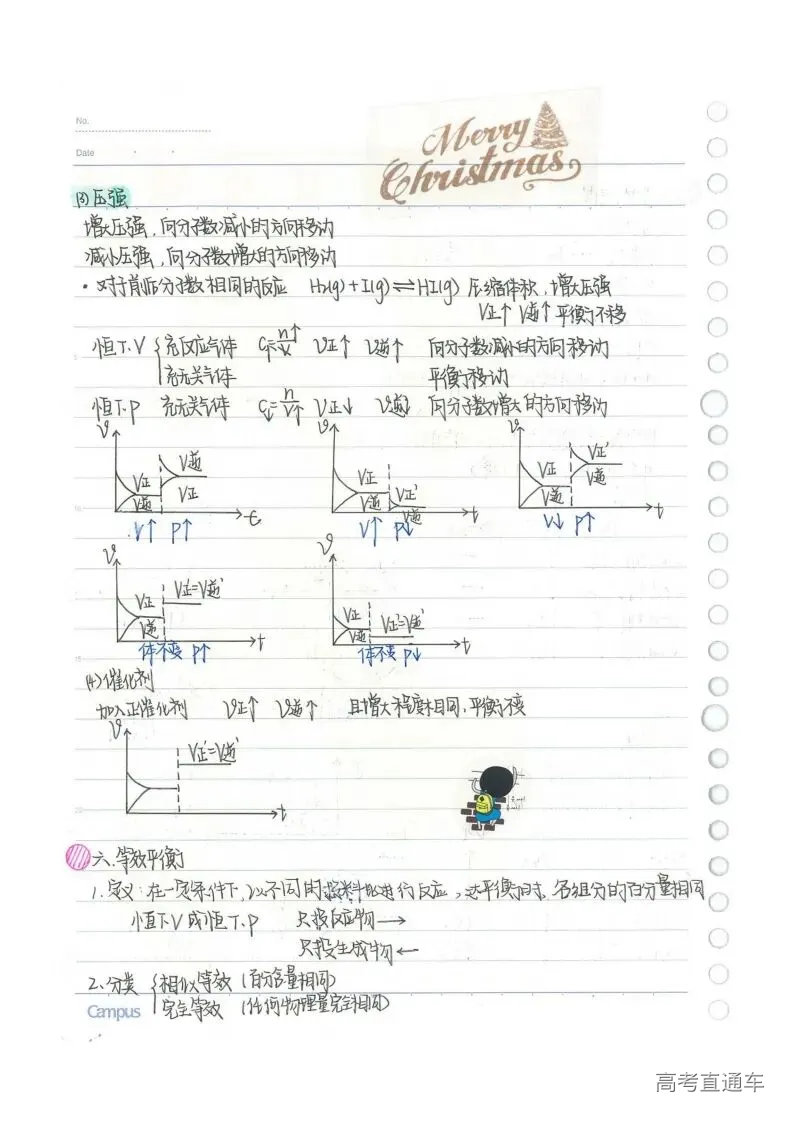 No.
Date
Merry
Christmas
(3) 压强
增大压强，向分子数减小的方向移动
减小压强，向分子数增大的方向移动
·对于前后分子数相同的反应 H₂(g)+I(g)⇌HI(g) 压缩体积，增大压强
V正↑ V逆↑ 平衡不移
恒T.V 充反应气体 C=n↑/V V正↑ V逆↑ 向分子数减小的方向移动
充无关气体 平衡移动
恒T.P 充无关气体 C↓=n/V↑ V正↓ V逆↓ 向分子数增大的方向移动
V V正 V逆 V逆 V正 t
V V正 V逆 V正' V逆 t
V V正 V逆 V正' V逆 t
V↑ P↑
V↑ P↓
V↓ P↑
V V正 V逆 V正'=V逆' t
V V正 V逆 V正'=V逆' t
体不变 P↑
体不变 P↓
(4) 催化剂
加入正催化剂 V正↑ V逆↑ 且增大程度相同，平衡不变
V V正'=V逆' t
六、等效平衡
1. 定义：在一定条件下，以不同的投料比进行反应，达平衡时，各组分的百分量相同
恒T.V 或恒T.P 只投反应物→
只投生成物←
2. 分类 相似等效（百分含量相同）
完全等效（任何物理量完全相同）
Campus
高考直通车